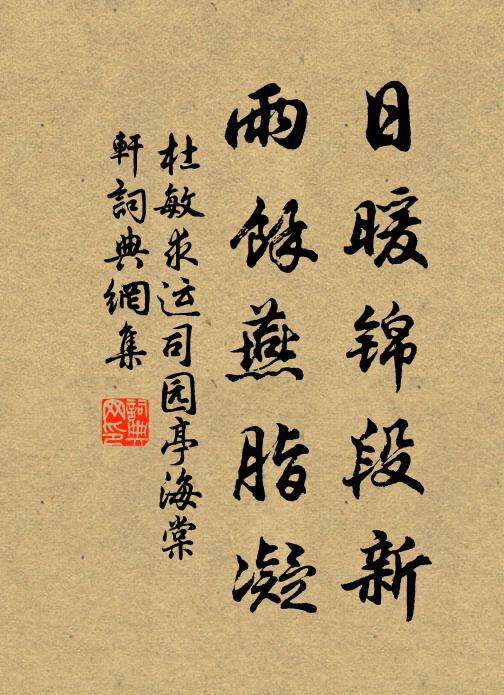 日暖锦段新
雨餘燕脂凝
杜敏求运司园亭海棠
軒詞典網集
詞典
网印